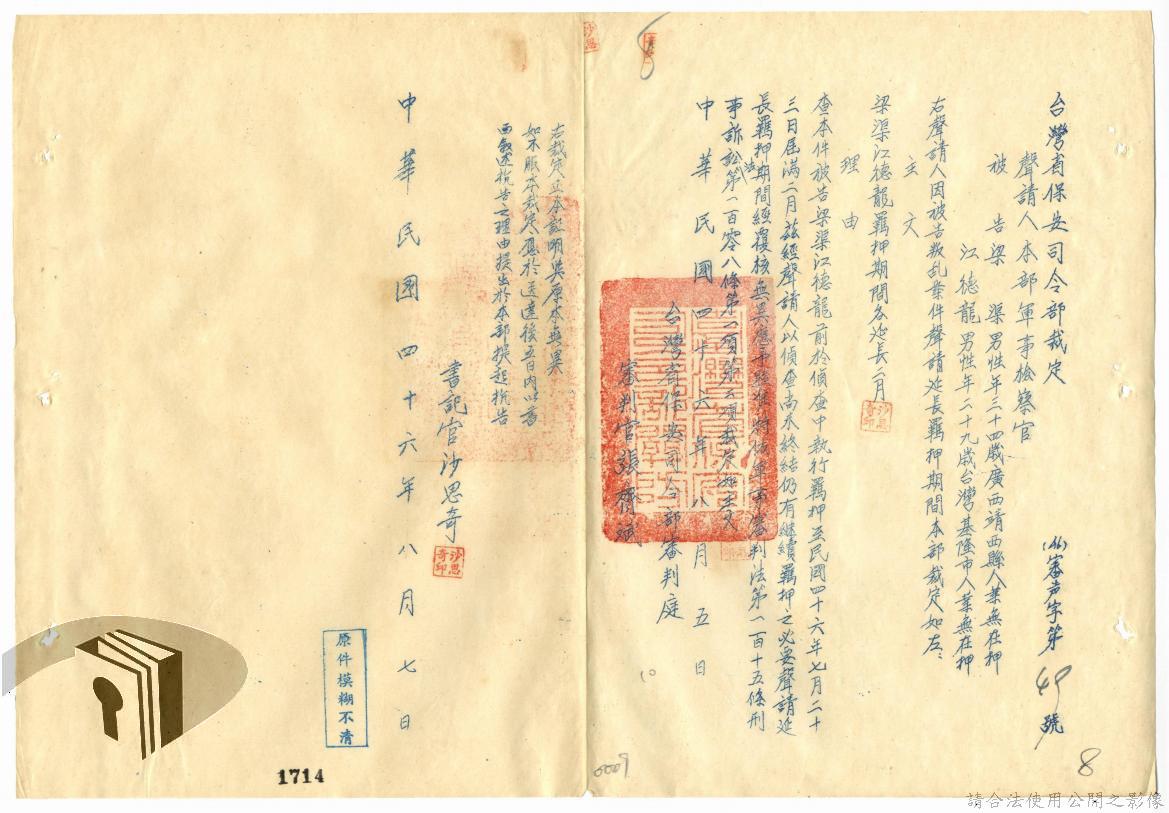 台灣省保安司令部裁定
(46)審声字第49號
聲請人本部軍事檢察官
被告梁渠男性年三十四歲廣西靖西縣人業無在押
江德龍男性年二十九歲台灣基隆市人業無在押
右聲請人因被告叛乱案件聲請延長羈押期間本部裁定如左:
主文
梁渠江德龍羈押期間各延長二月
沙思奇印
理由
查本件被告梁渠江德龍前於偵查中執行羈押至民國四十六年七月二十
三日屆滿二月茲經聲請人以偵查尚未終結仍有继續羈押之必要聲請延
長羈押期間經覆核無異應予照准特依軍事審判法第一百十五條刑
事訴訟法第一百零八條第一項第二項裁定如主文
中華民國四十六年八月五日
台灣省保安司令部審判庭
審判官張齊斌
右裁定正本証明與原本無異
如不服本裁定應於送達後五日內以書
面敘述抗告之理由提出於本部提起抗告
書記官沙思奇
沙思奇印
中華民國四十六年八月七日
原件模糊不清
1714
0009
8
10
請合法使用公開之影像